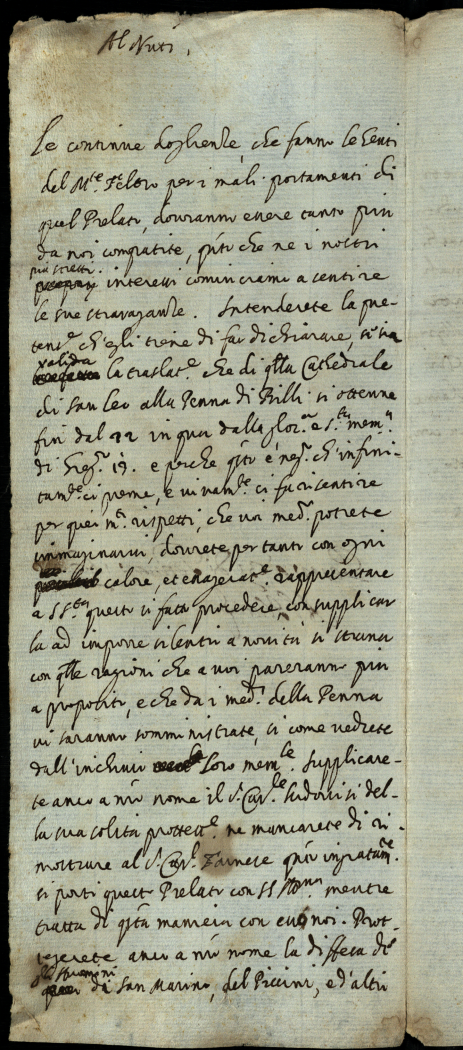 Al Nuti,
Le continue doglienze, che fanno le genti
del M.te Feltro per i mali portamenti di
quel Prelato, dovranno essere tanto più
da noi compatite, q.to che ne i nostri
più stretti
interessi cominciamo a sentire
le sue stravaganze. Intenderete la pre-
tens.e ch'egli tiene di far dichiarare, si sia
valida
la traslat.e che di q.lla Cathedrale
di San Leo alla Penna di Billi si ottenne
fin dal 22 in qua dalla glor.a e S.ta mem.a
di Greg.o 13. e perche q.to è neg.o ch'infini-
tam.te ci preme, e vivam.te ci fa risentire
per quei m.i rispetti, che voi med.o potrete
immaginarvi, dovrete per tanto con ogni
calore, et esagerat.e rappresentare
a S S.tà questo si fatto procedere, con supplicar
la ad imporre silentio a novità si strana
con q.lle ragioni che a voi pareranno più
a proposito, e che da i med.i della Penna
vi saranno somministrate, si come vedrete
dall'inchiuso loro mem.le. Supplicare-
te anco a nro nome il S.r Car.le Ludovisi del-
la sua solita protett.e ne mancarete di ri-
mostrare al S.r Car.l Farnese q.to ingratam.te
si porti questo Prelato con mentre
tratta di q.sta maniera con noi. Prot-
teggerete anco a nro nome la diffesa de
gl'huomini
di San Marino, del Piccini, e d'altri